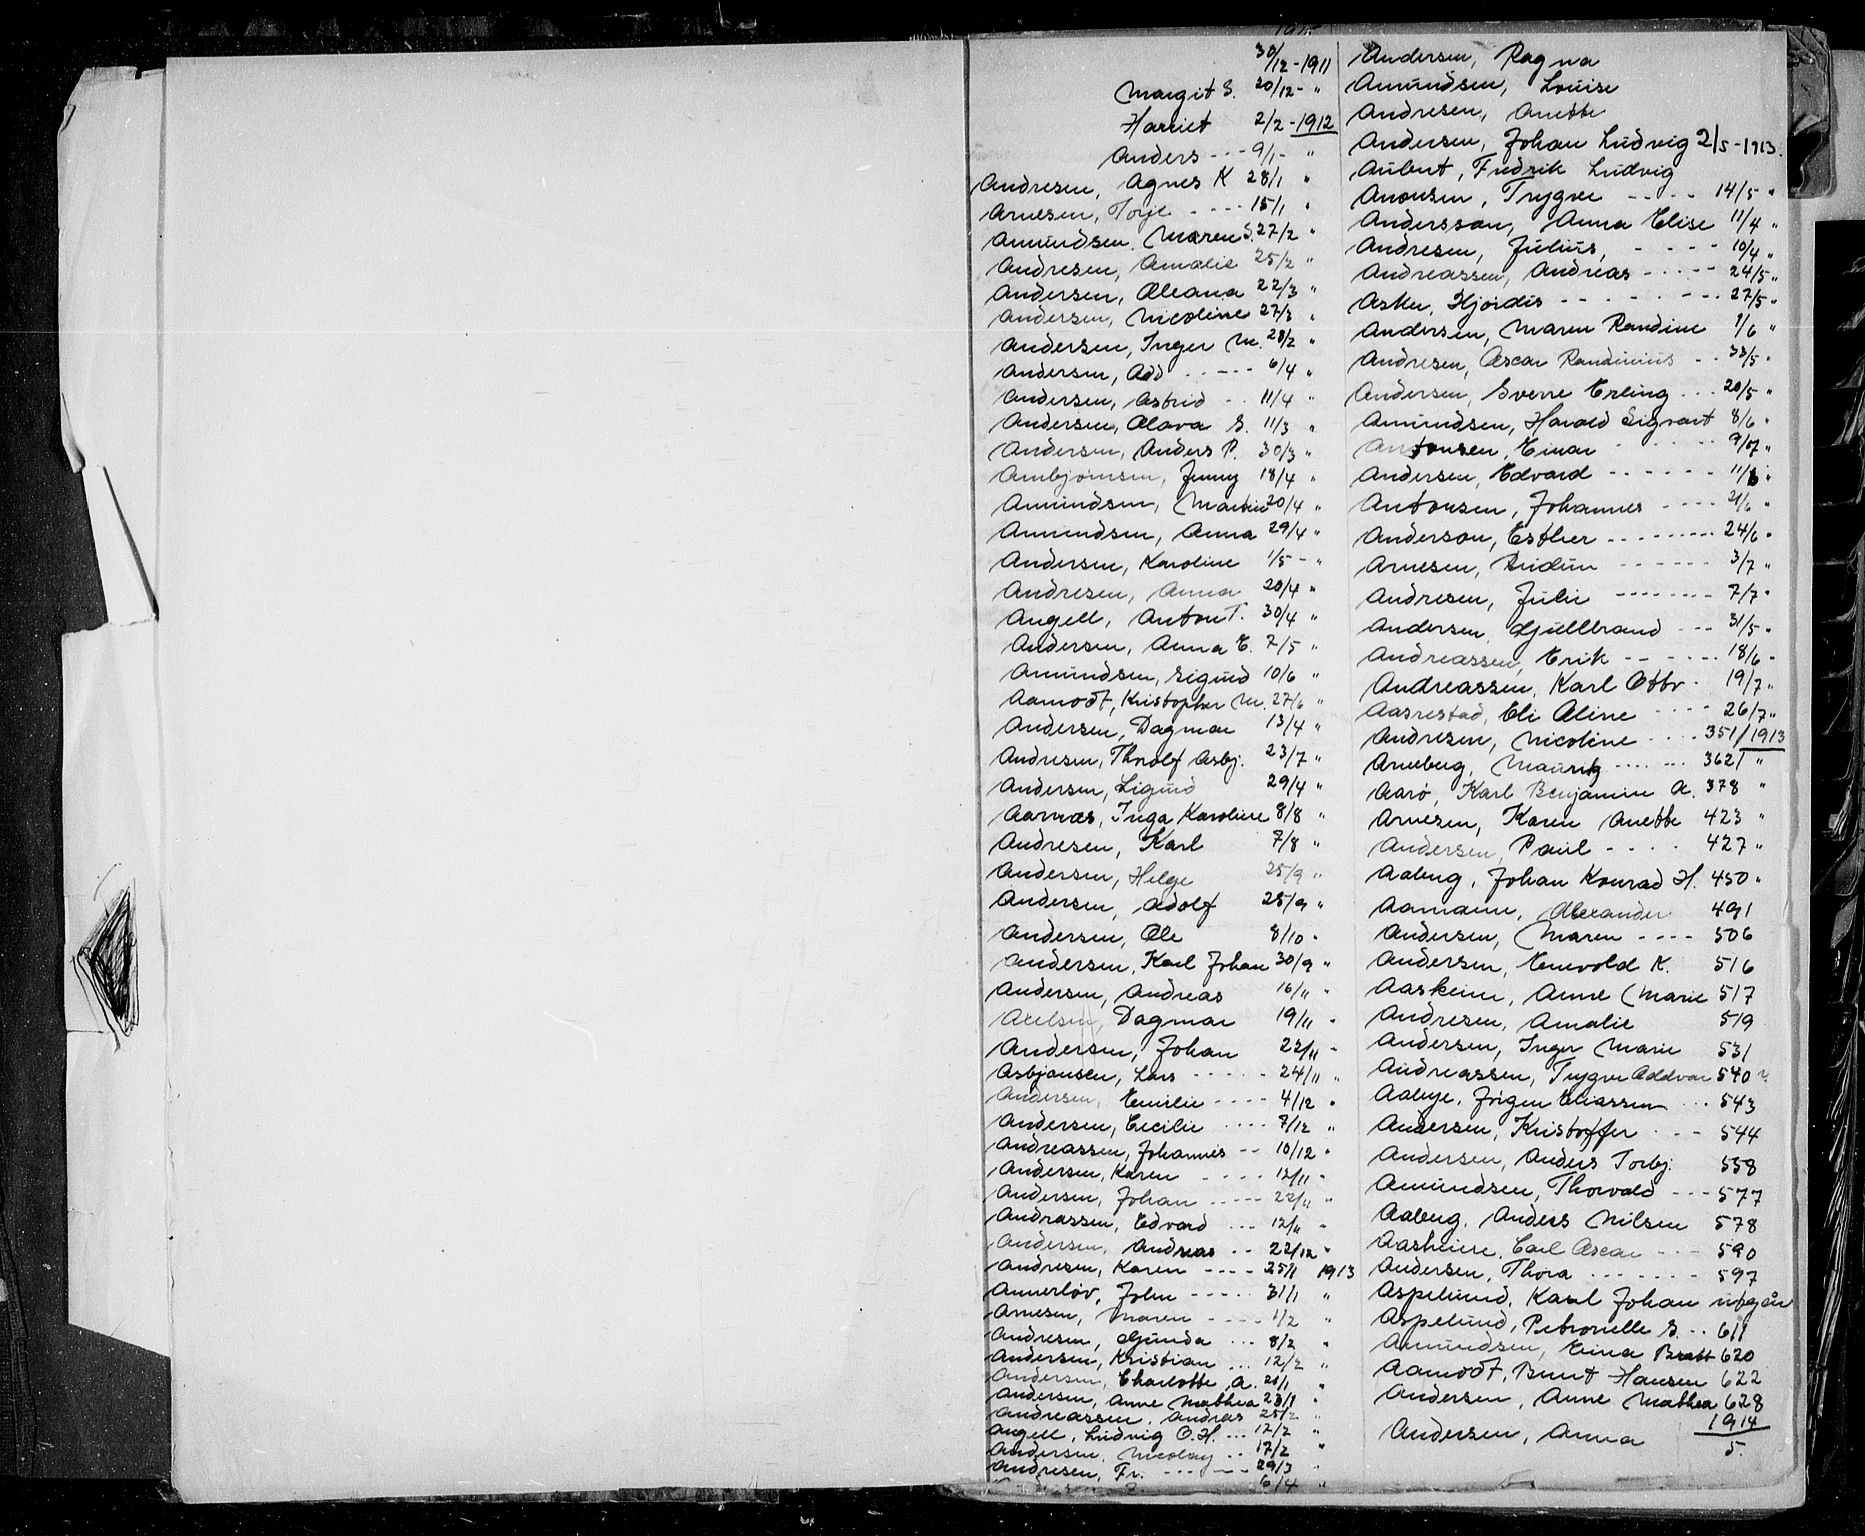 30/12 - 1911
Margit S. 20/12 - "
Harriet 2/2 - 1912
Anders --- 9/1 - "
Andresen, Agnes K 28/1 "
Arnesen, Torje ---- 15/1 "
Amundsen, Maren S. 27/2 "
Andresen, Amalie 25/2 "
Andersen, Oleana 22/3 "
Andersen, Nicoline 27/3 "
Andersen, Inger M. 28/2 "
Andersen, Odd ----- 6/4 "
Andersen, Astrid -- 11/4 "
Andersen, Olava S. 11/3 "
Andersen, Anders P. 30/3 "
Arnbjørnsen, Jenny 18/4 "
Amundsen, Martin 20/4 "
Amundsen, Anna 29/4 "
Andersen, Karoline 1/5 - "
Andresen, Anna 20/4 "
Angell, Anton T. 30/4 "
Andersen, Anna E. 7/5 "
Amundsen, Sigurd 10/6 "
Aamodt, Kristopher M. 27/6 "
Andersen, Dagmar 13/4 "
Andresen, Thorolf Asbj. 23/7 "
Andersen, Sigurd 29/4 "
Aarnæs, Inga Karoline 8/8 "
Andresen, Karl 7/8 "
Andersen, Helge 25/9 "
Andersen, Adolf 25/9 "
Andersen, Ole 8/10 "
Andersen, Karl Johan 30/9 "
Andersen, Andreas 16/11 "
Axelsen, Dagmar 19/11 "
Andersen, Johan 22/11 "
Asbjønsen, Lars ----- 24/11 "
Andersen, Emilie ---- 4/12 "
Andersen, Cecilie ---- 7/12 "
Andreassen, Johannes -- 10/12 "
Andersen, Karen ---- 12/11 "
Andersen, Johan ----- 22/11 "
Andrassen, Edvard --- 12/11 "
Andersen, Andreas -- 22/12 "
Andresen, Karen ---- 25/1 1913
Annerløv, John ----- 31/1 "
Arnesen, Maren ---- 1/2 "
Andresen, Gunda --- 8/2 "
Andersen, Kristian --- 12/2 "
Andersen, Charlotte A. 20/1 "
Andersen, Anne Mathea 23/1 "
Andreassen, Andreas 25/2 "
Angell, Ludvig O.H. --- 12/2 "
Andersen, Nicolay -- 17/2 "
Andresen, Fr. ----- 29/3 "
6/4 "
Andersen, Ragna
Amundsen, Louise
Andresen, Anette
Andersen, Johan Ludvig 2/5 - 1913.
Aubert, Fredrik Ludvig
Anonsen, Trygve ----- 14/5 "
Andersson, Anna Elise 11/4 "
Andresen, Julius, ---- 10/4 "
Andreassen, Andreas ----- 24/5 "
Asker, Hjørdis ------- 27/5 "
Andersen, Maren Randine 1/6 "
Andresen, Oscar Randinius -- 23/5 "
Andersen, Sverre Erling --- 20/5 "
Amundsen, Harald Sigvart 8/6 "
Antonsen, Einar ----- "
Andersen, Edvard ------ "
Antonsen, Johannes ---- "
Anderson, Esther --------- 24/6 "
Arnesen, ------ 3/7 "
Andresen, Julie -------- 7/7 "
Andersen, Gullbrand --- 31/5 "
Andreassen, Erik ------- 18/6 "
Andreassen, Karl Otto - 19/7 "
Aasrestad, Eli Oline ---- 26/7 "
Andresen, Nicoline ---- 351/1913
Arneberg, Mauritz ------ 362 / "
Aarø, Karl Benjamin A. 378 "
Arnesen, Karen Anette 423 "
Andersen, Paul ---- 427 "
Aaberg, Johan Konrad H. 450 "
Aamann, Alexander 491
Andersen, Maren ---- 506
Andersen, Enevold K. 516
Aasheim, Anne Marie 517
Andresen, Amalie 519
Andersen, Inger Marie 531
Andreassen, Trygve Oddvar 540
Aabye, Jörgen Eliassen --- 543
Andersen, Kristoffer --- 544
Andersen, Anders Torbj. 558
Amundsen, Thorvald --- 577
Aaberg, Anders Nilsen 578
Aasheim, Carl Oscar --- 590
Andersen, Thora ------- 597
Aspelund, Karl Johan utgår
Aspelund, Petronelle S. -- 611
Amundsen, Eina Bratt 620
Aamodt, Bernt Hansen 622
Andersen, Anne Mathea 628
1914
Andersen, Anna 5